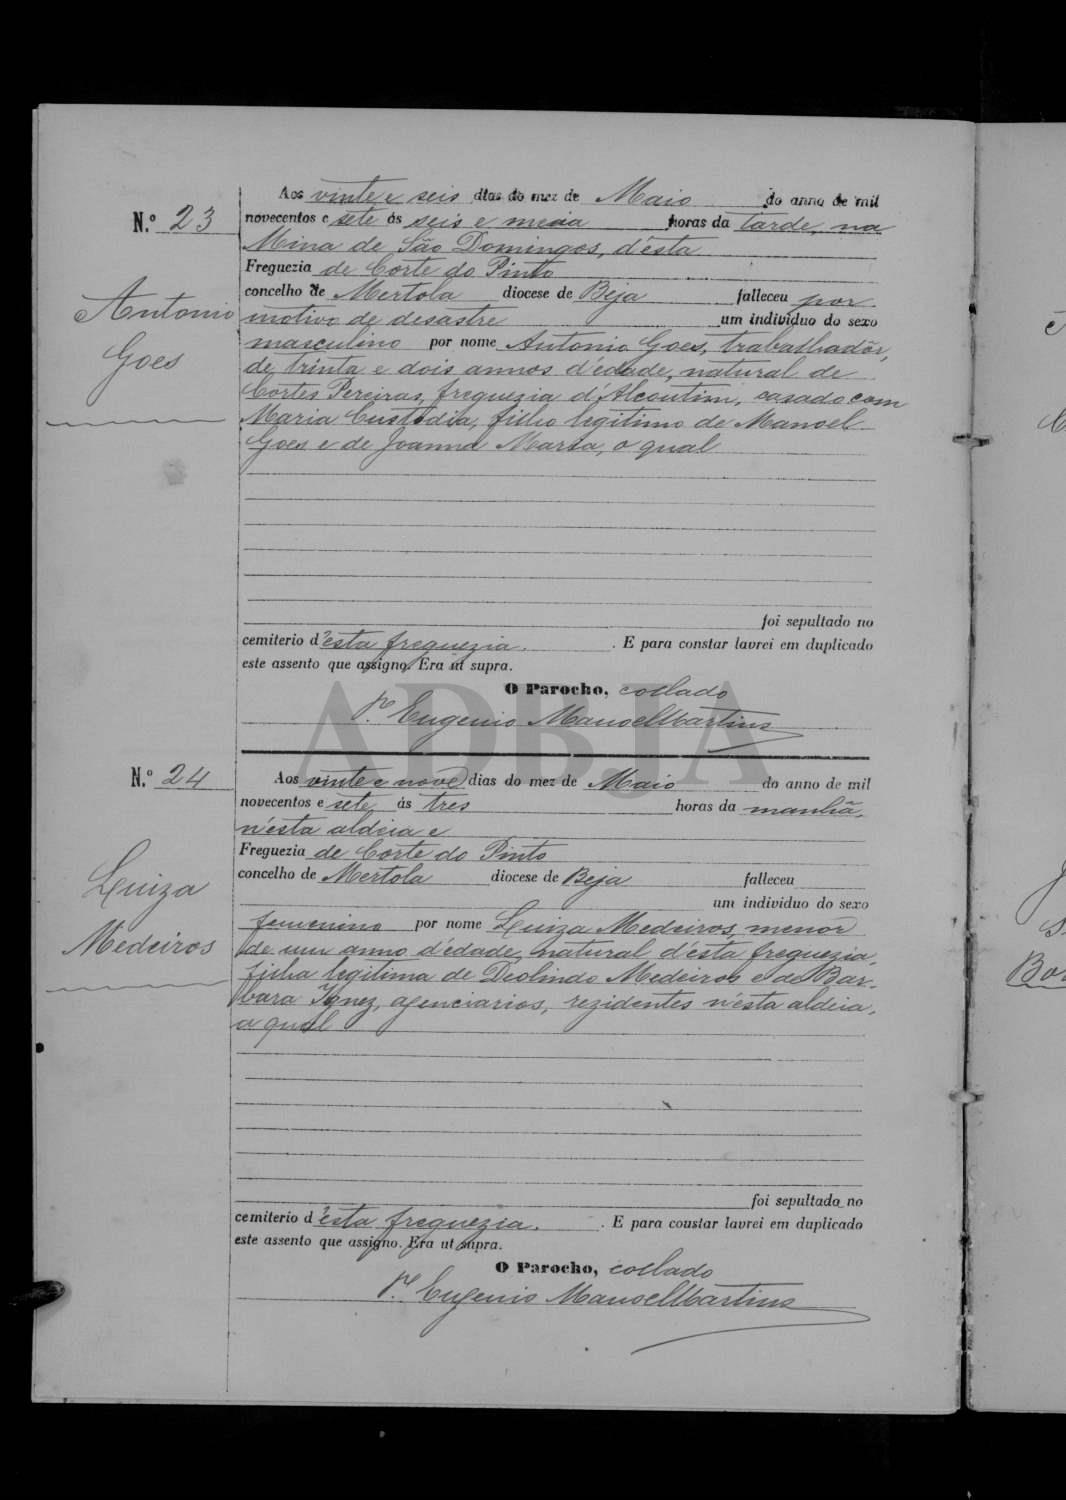 N.º 23
Antonio
Goes
Aos vinte e seis dias do mez de Maio do anno de mil
novecentos e sete ás seis e meia horas da tarde, na
Mina de São Domingos, d'ésta
Freguezia de Corte do Pinto
concelho de Mertola diocese de Beja falleceu por
motivo de desastre um individuo do sexo
masculino por nome Antonio Goes, trabalhadôr,
de trinta e dois annos d'édade, natural de
Cortes Pereiras, freguezia d'Alcoutim, casado com
Maria Custodia, filho legitimo de Manoel
Goes e de Joanna Maria, o qual
foi sepultado no
cemiterio d'ésta freguezia. E para constar lavrei em duplicado
este assento que assigno. Era ut supra.
O Parocho, collado
P.e Eugenio Manoel Martins
ADBJA
N.º 24
Luiza
Medeiros
Aos vinte e nove dias do mez de Maio do anno de mil
novecentos e sete ás tres horas da manhã,
n'ésta aldeia e
Freguezia de Corte do Pinto
concelho de Mertola diocese de Beja falleceu
um individuo do sexo
femenino por nome Luiza Medeiros, menor
de um anno d'édade, natural d'ésta freguezia,
filha legitima de Deolindo Medeiros e de Bar-
bara Ignez, agenciarios, rezidentes n'ésta aldeia,
a qual
foi sepultada no
cemiterio d'ésta freguezia. E para constar lavrei em duplicado
este assento que assigno. Era ut supra.
O Parocho, collado
P.e Eugenio Manoel Martins